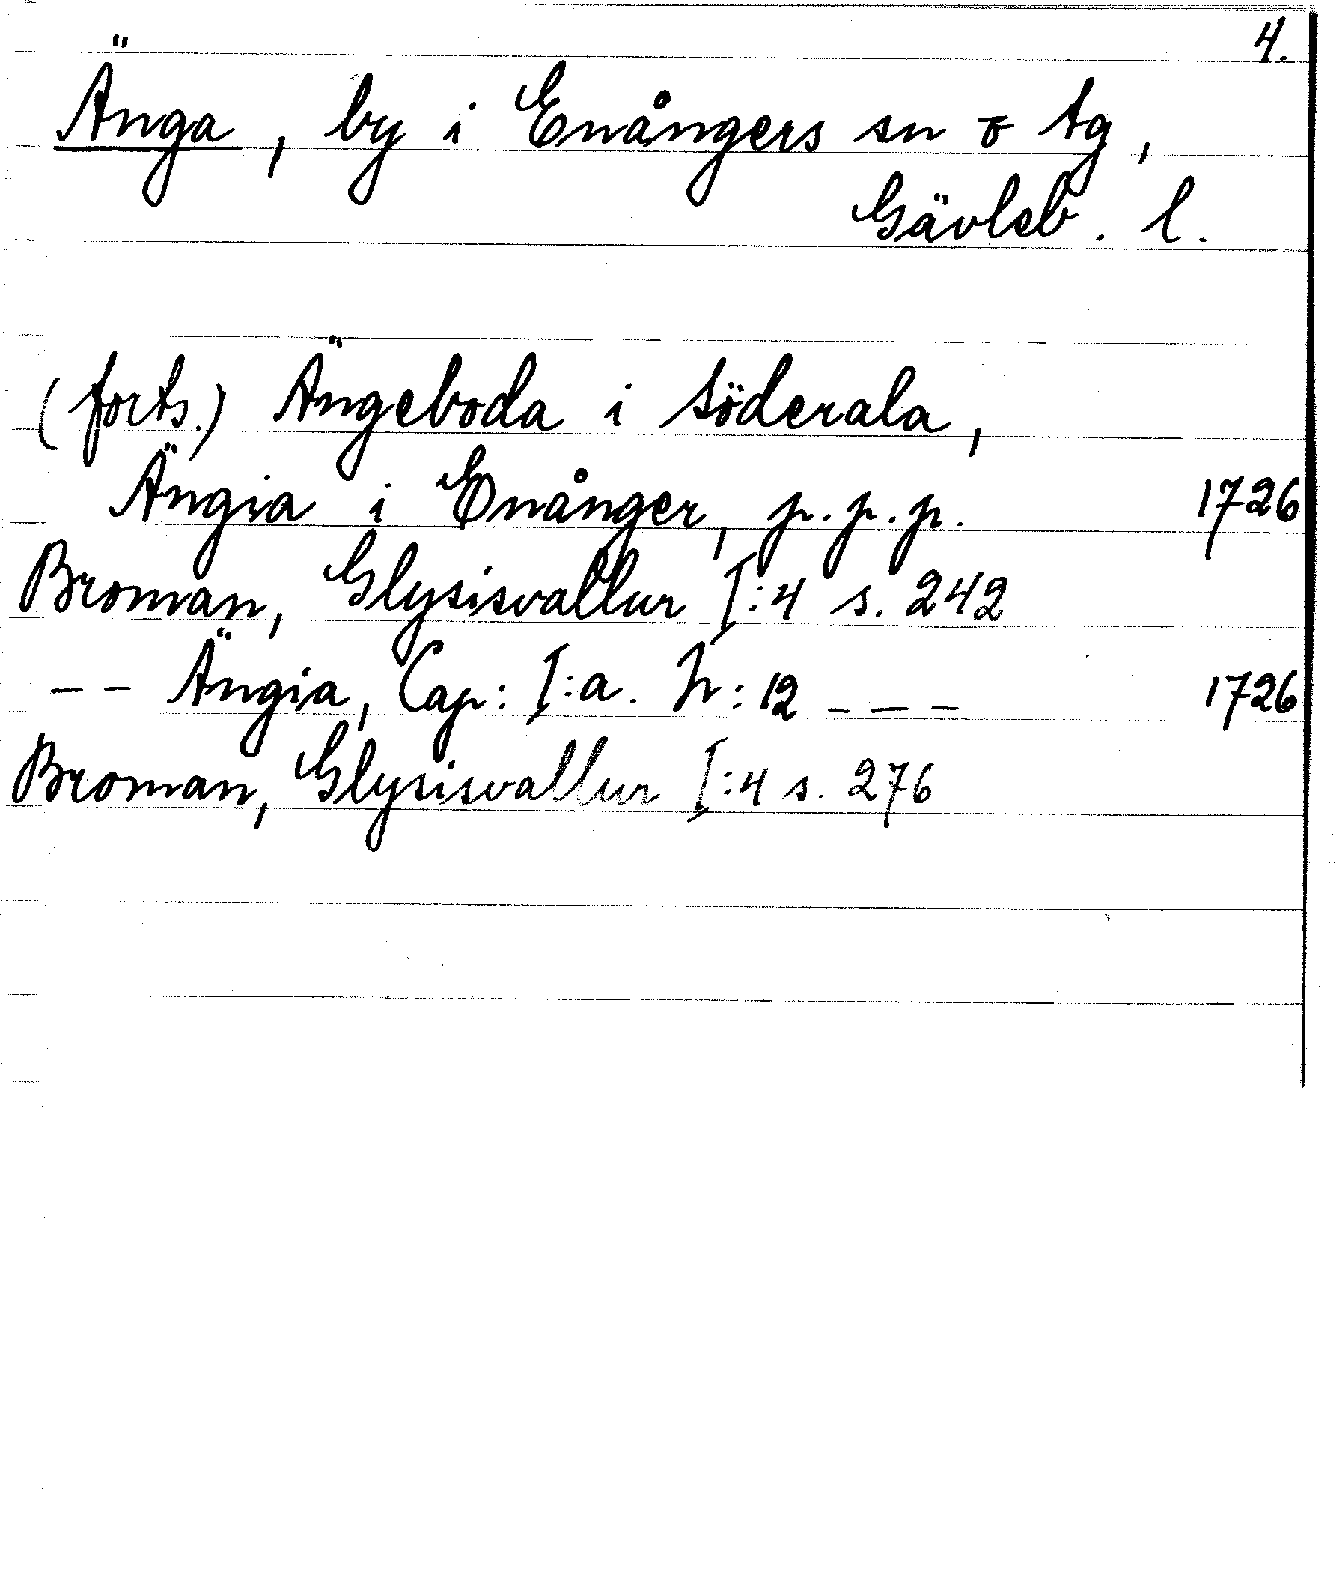 4.
Änga, by i Enångers sn o tg,
Gävleb. l.
(forts.) Ängeboda i Söderala,
Ängia i Enånger, p.p.p. 1726
Broman, Glysisvallur I:4 s. 242
-- Ängia, Cap: I:a. h: 12 --- 1726
Broman, Glysisvallur I:4 s. 276